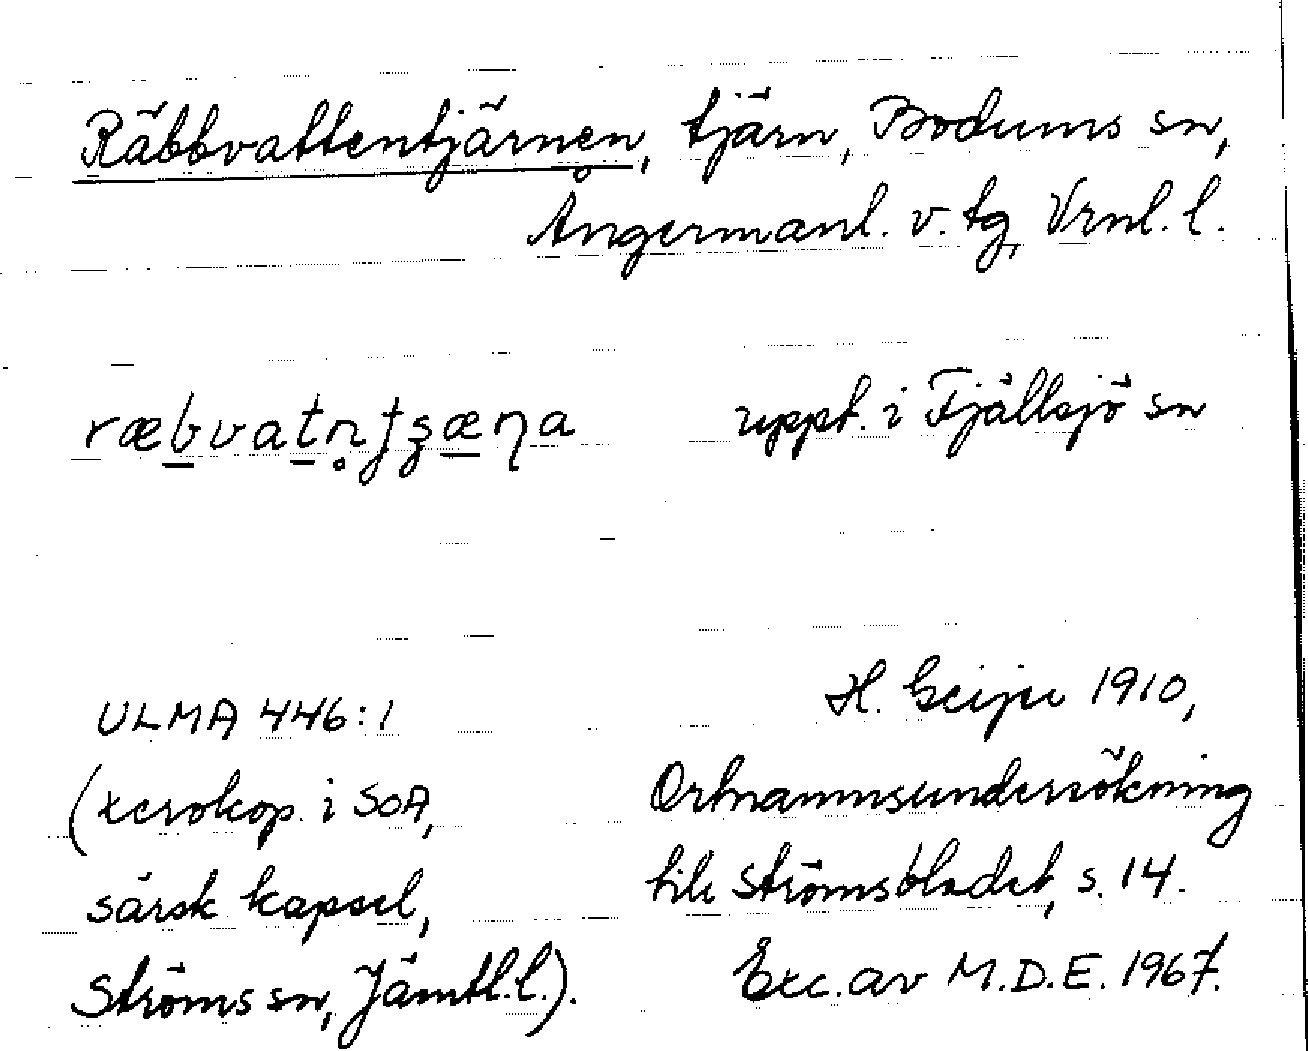 Räbbvattentjärnen, tjärn, Bodums sn,
Ångermanl. v. tg, Vrnl. l.
ræbvatn̥tʂæɳa uppt. i Fjällsjö sn
ULMA 446:1 H. Geijer 1910,
(xerokop. i SOA, Ortnamnsundersökning
särsk kapsel, till Strömsbladet, s. 14.
Ströms sn, Jämtl. l.). Exc. av M.D.E. 1967.